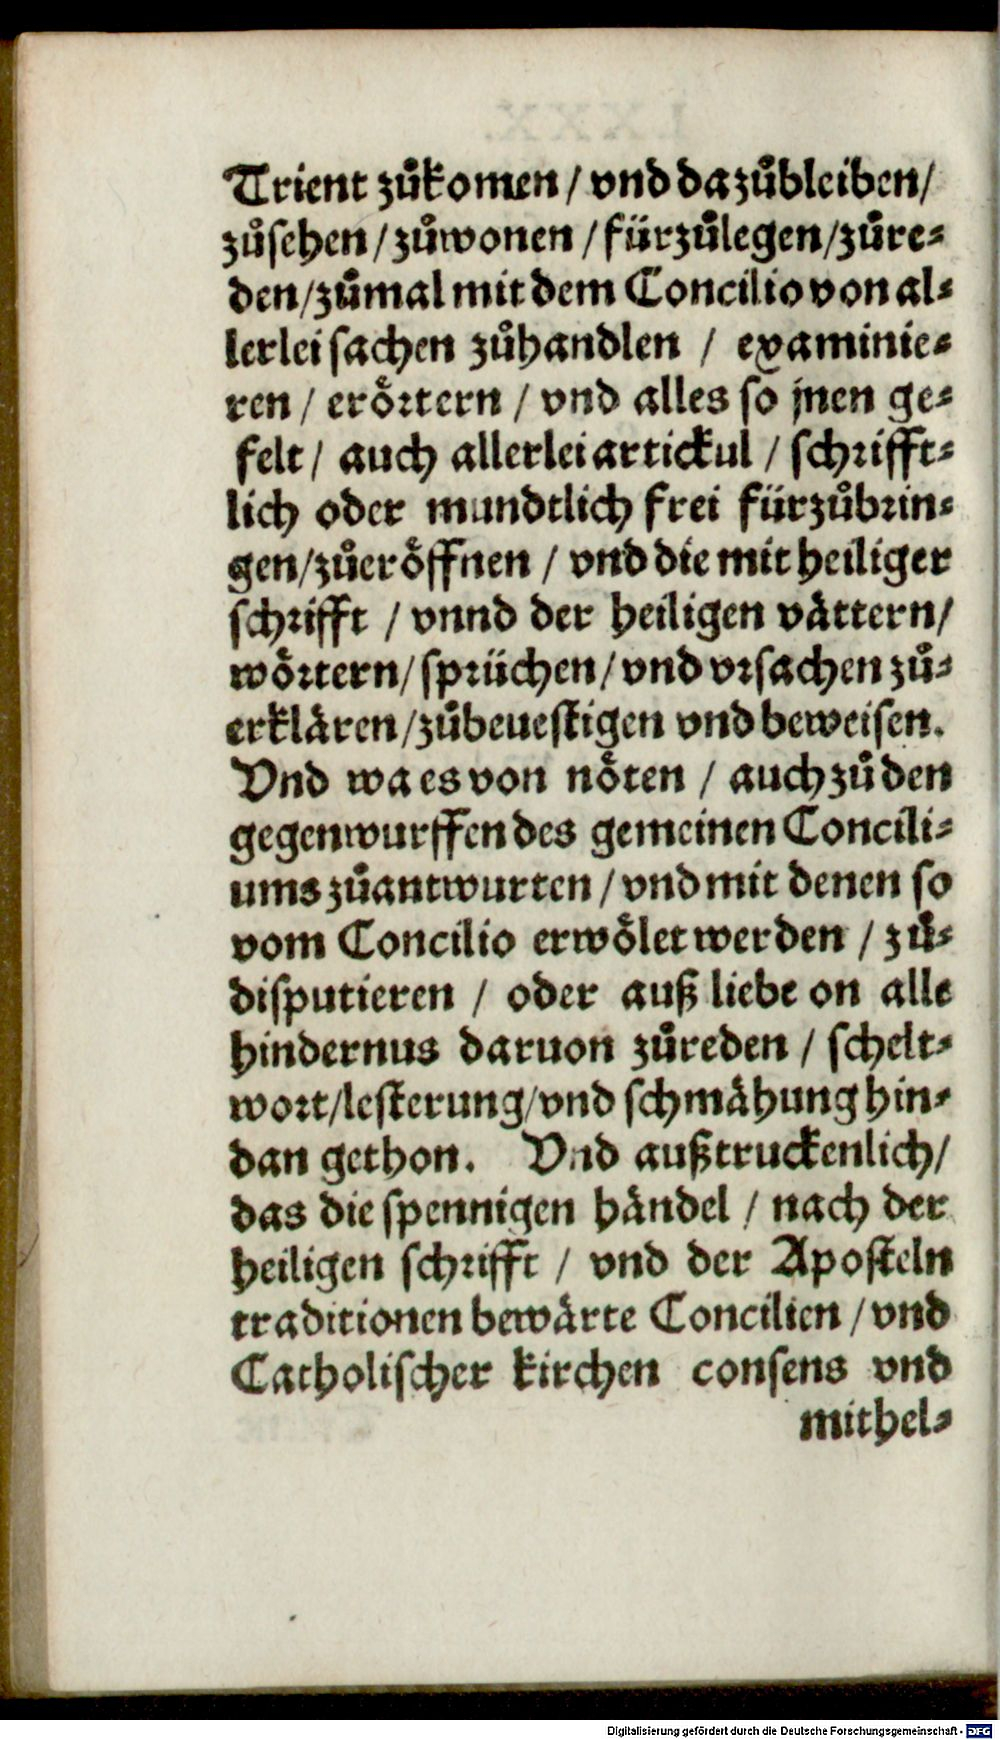 Trient zůkomen / vnd da zůbleiben /
zůsehen / zůwonen / fürzůlegen / zůre⸗
den / zůmal mit dem Concilio von al⸗
lerlei sachen zůhandlen / examinie⸗
ren / erörtern / vnd alles so jnen ge⸗
felt / auch allerlei artickul / schrifft⸗
lich oder mundtlich frei fürzůbrin⸗
gen / zůeröffnen / vnd die mit heiliger
schrifft / vnnd der heiligen vättern /
wörtern / sprüchen / vnd vrsachen zů⸗
erklären / zůbeuestigen vnd beweisen.
Vnd wa es von nöten / auch zů den
gegenwurffen des gemeinen Concili⸗
ums zůantwurten / vnd mit denen so
vom Concilio erwölet werden / zů⸗
disputieren / oder auß liebe on alle
hindernus daruon zůreden / schelt⸗
wort / lesterung / vnd schmähung hin⸗
dan gethon. Vnd außtruckenlich /
das die spennigen händel / nach der
heiligen schrifft / vnd der Aposteln
traditionen bewärte Concilien / vnd
Catholischer kirchen consens vnd
mithel⸗
Digitalisierung gefördert durch die Deutsche Forschungsgemeinschaft - DFG